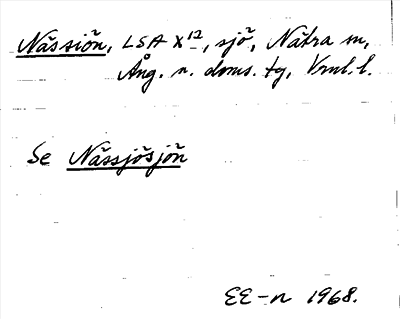 Nässiön, LSA X 12, sjö, Nätra sn,
Ång. n. doms. tg, Vrnl. l.
Se Nässjösjön
EE-n 1968.